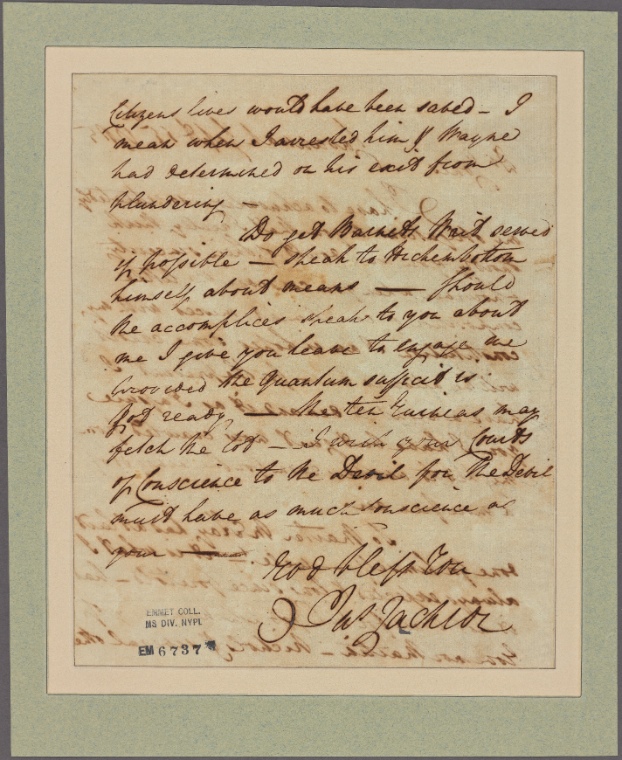 Citizens lives would have been saved – I
mean when I arrested him Genl Wayne
had determined on his exit from
plundering –
Do get Barnetts Writ served
if possible – speak to
himself about means — Should
the accomplices speak to you about
me I give you leave to engage me
provided the quantum sufficit is
got ready — the ten Guineas may
fetch the lot – I wish your Courts
of Conscience to the Devil for the Devil
must have as much Conscience as
your ———
God bless You
Jas Jackson
EMMET COLL.
MS DIV. NYPL
EM 6737